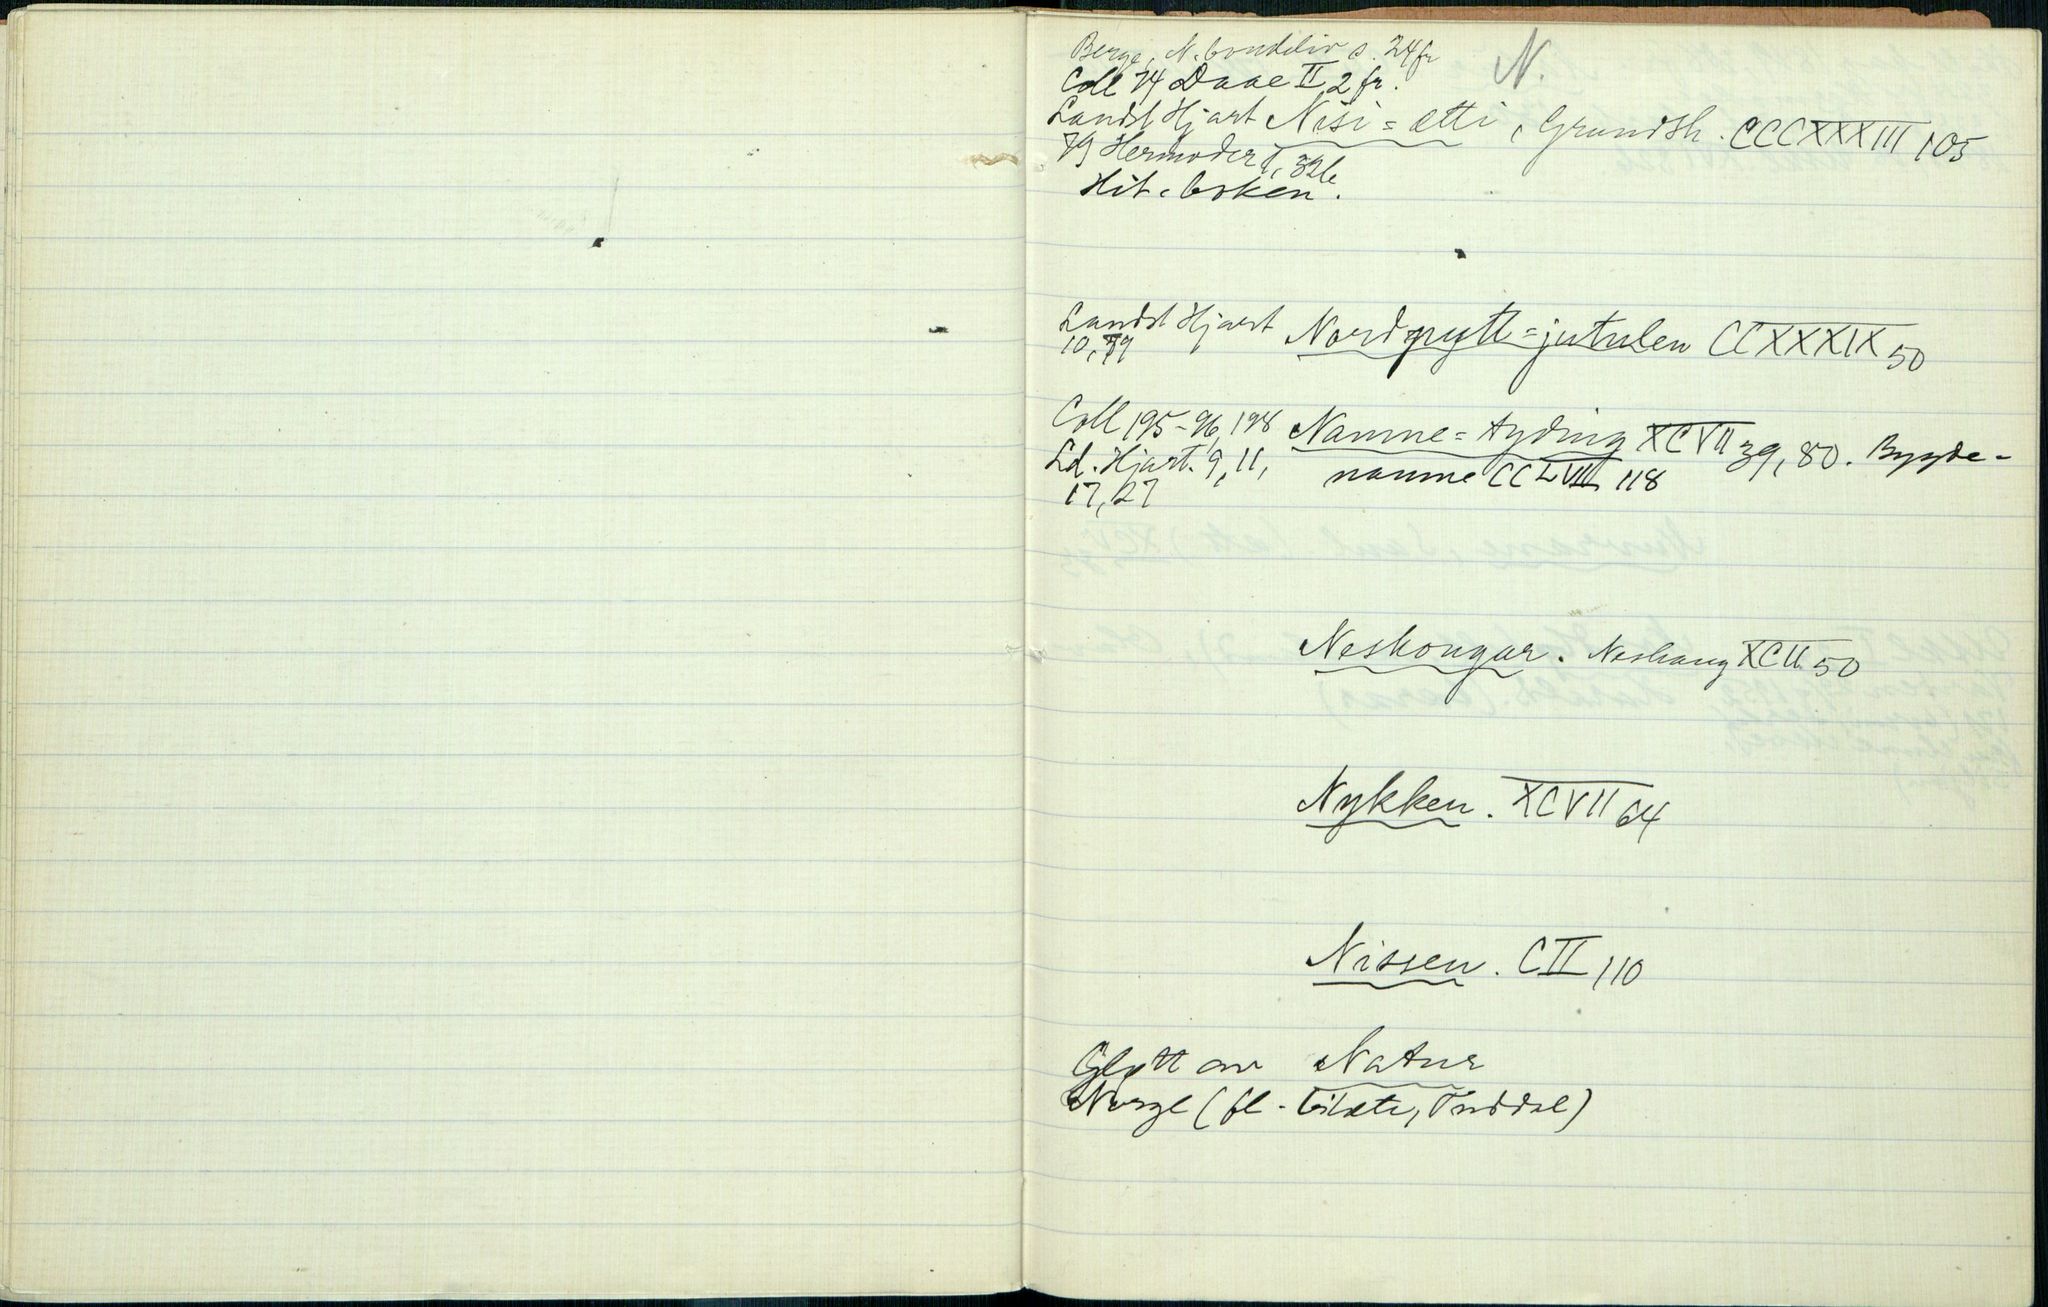 N.
Berge, N. bondeliv s. 24 fr
Coll 74 Daae II 2 fr.
Landst Hjart Nisi = ætti, Grundsh. CCCXXXIII 105
79 Hermoder I, 32b
Hit-boken.
Landst Hjart Nordpytt = jutulen CCXXXIX 50
10, 79
Coll 195-96, 198 Namne = tyding XCVII 39, 80. Bygde-
Ld. Hjart. 9, 11, namne CCLVIII 118
17, 27
Neskongar. Neskong XCII 50
Nykken. XCVII 64
Nissen. CII 110
Glytt av Natur
Norge (fl. bilæte, Tuddal)